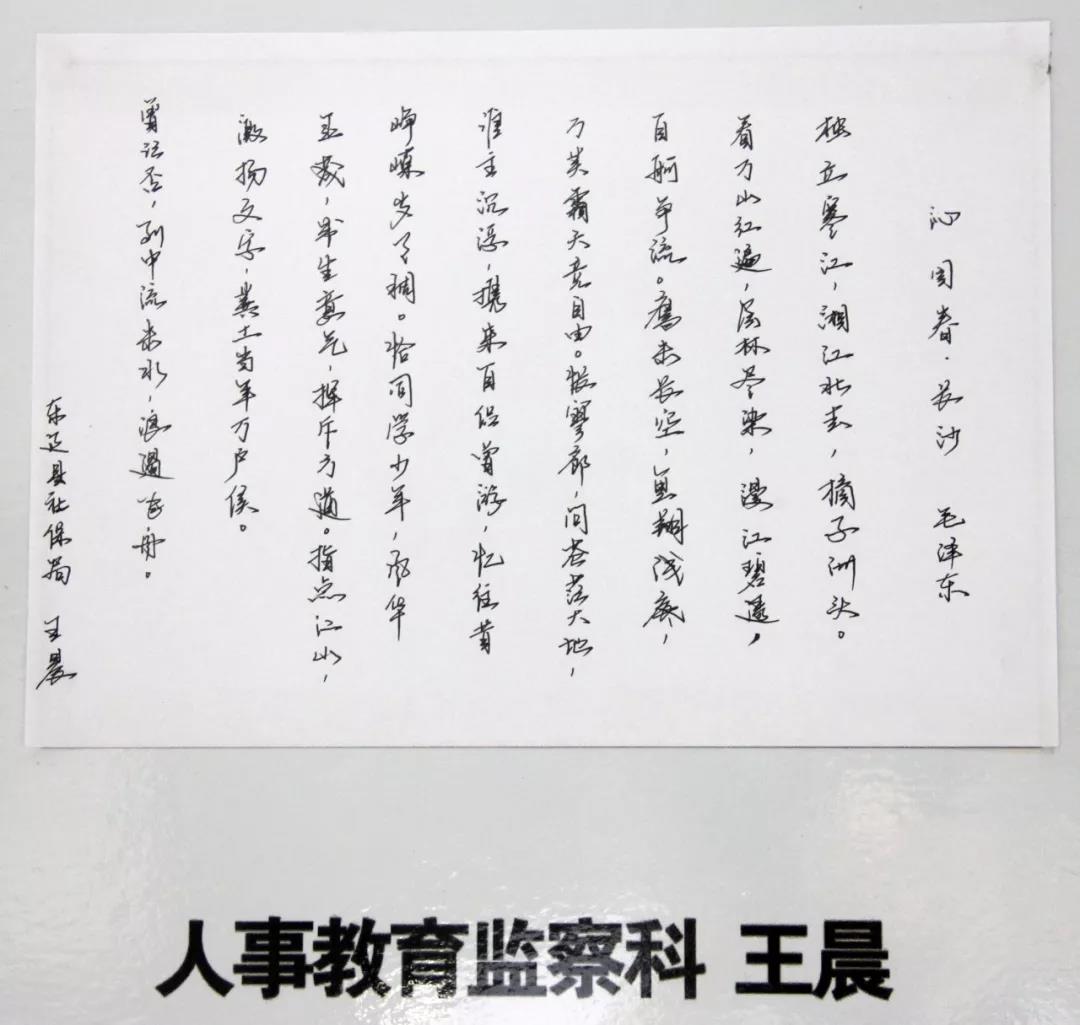 沁园春·长沙 毛泽东
独立寒江,湘江北去,橘子洲头。
看万山红遍,层林尽染,漫江碧透,
百舸争流。鹰击长空,鱼翔浅底,
万类霜天竞自由。怅寥廓,问苍茫大地,
谁主沉浮,携来百侣曾游,忆往昔
峥嵘岁月稠。恰同学少年,风华
正茂,书生意气,挥斥方遒。指点江山,
激扬文字,粪土当年万户侯。
曾记否,到中流击水,浪遏飞舟。
东辽县社保局 王晨
人事教育监察科 王晨